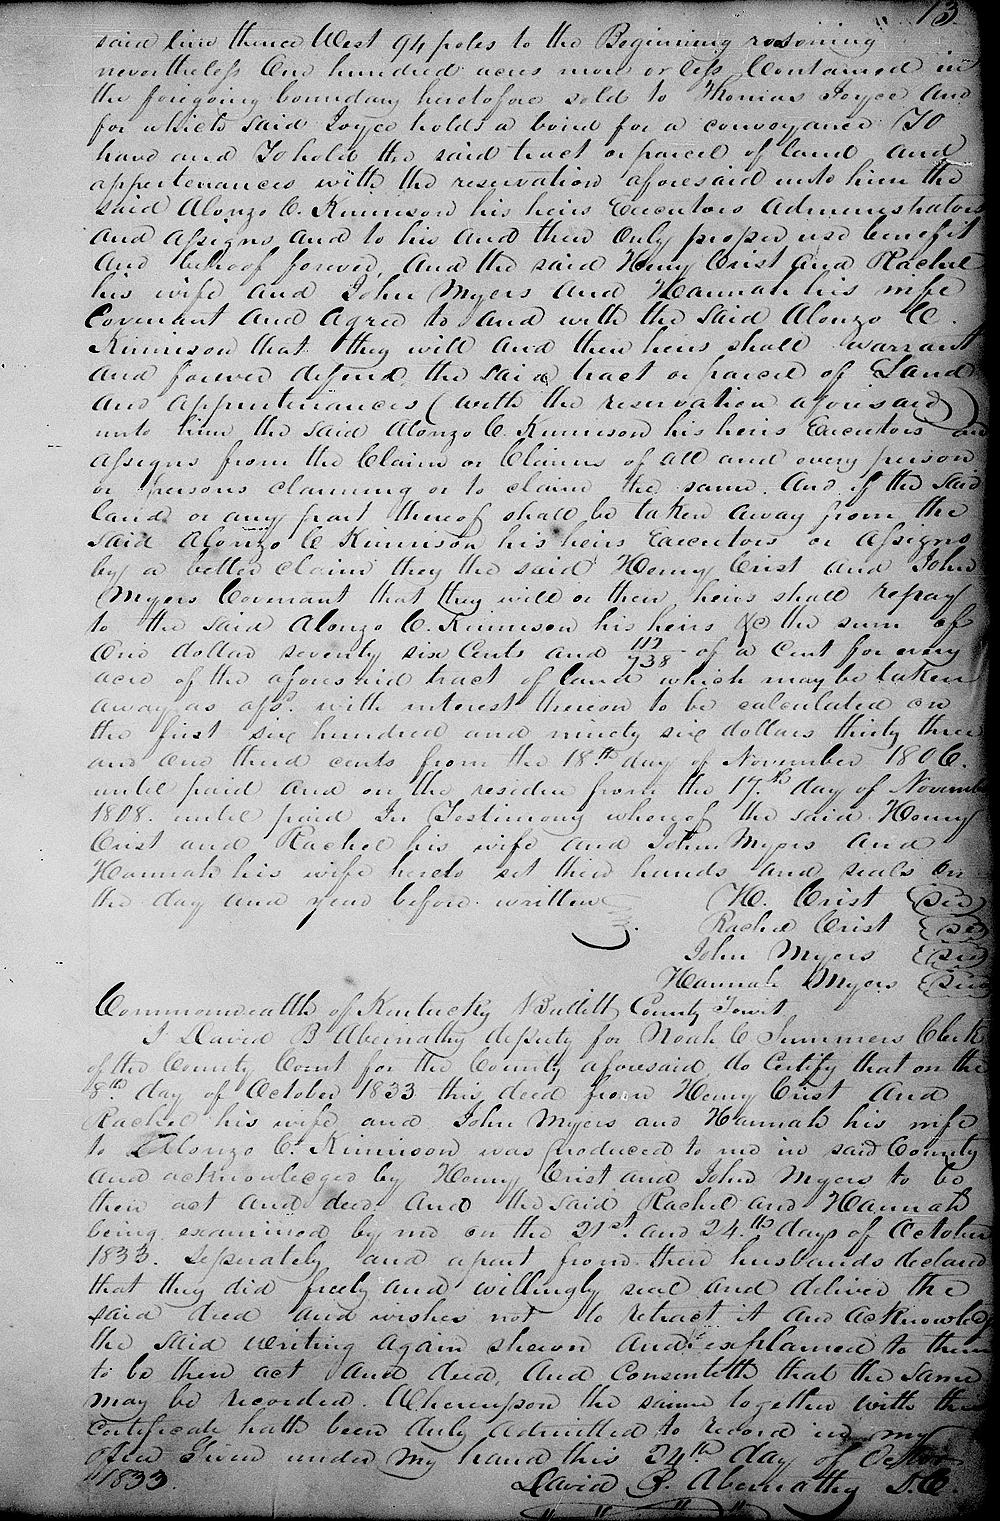 13
said line thence West 94 poles to the Beginning reserving
nevertheless One hundred acres more or less Contained in
the foregoing boundary heretofore sold to Thomas Joyce And
for which said Joyce holds a bond for a conveyance TO
have and To hold the said tract or parcel of land And
appertenances with the reservation aforesaid unto him the
said Alonzo C. Kinnison his heirs Executors Administrators
And Assigns And to his And their Only proper use benefit
And behoof forever, And the said Henry Crist And Rachel
his wife And John Myers And Hannah his wife
Covenant And Agree to And with the Said Alonzo C.
Kinnison that they will And their heirs shall warrant
And forever defend the said tract or parcel of Land
And Appertenances (with the reservation aforesaid)
unto him the said Alonzo C. Kinnison his heirs Executors and
Assigns from the Claim or Claims of All and every person
or persons claiming or to claim the same. And if the said
land or any part thereof shall be taken away from the
said Alonzo C Kinnison his heirs Executors or Assigns
by a better claim they the said Henry Crist and John
Myers Covenant that they will or their heirs shall repay
to the said Alonzo C. Kinnison his heirs &c the sum of
One dollar seventy six Cents and 112/738 of a Cent for every
acre of the aforesaid tract of land which may be taken
away as afs. with interest thereon to be calculated on
the first six hundred and ninety six dollars thirty three
and one third cents from the 18th day of November 1806.
until paid And on the residue from the 17th day of November
1808. until paid In Testimony whereof the said Henry
Crist and Rachel his wife and John Myers And
Hannah his wife hereto set their hands and seals On
the day and year before written
H. Crist (Seal)
Rachel Crist (Seal)
John Myers (Seal)
Hannah Myers (Seal)
Commonwealth of Kentucky Bullitt County Towit
I David B Abernathy deputy for Noah C Summers Clerk
of the County Court for the County aforesaid do Certify that on the
8th day of October 1833 this deed from Henry Crist And
Rachel his wife and John Myers and Hannah his wife
to Alonzo C. Kinnison was produced to me in said County
And acknowledged by Henry Crist and John Myers to be
their act And deed And the said Rachel and Hannah
being examined by me on the 21st and 24th days of October
1833. Seperately and apart from their husbands declared
that they did freely and willingly seal and deliver the
said deed and wishes not to retract it And acknowledg
the said writing again shewn And explained to them
to be their act And deed, And Consenteth that the same
may be recorded. Whereupon the same together with this
Certificate hath been duly admitted to record in my
office Given under my hand this 24th day of October
1833.
David B. Abernathy D.C.